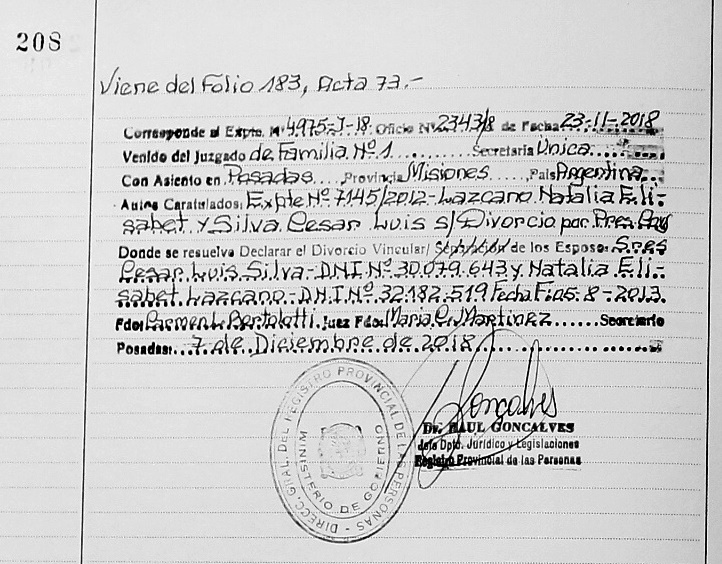 208
Viene del Folio 183, Acta 73.-
Corresponde al Expte. Nº 4975-J-18. Oficio Nº 2343/18 de Fecha 23-11-2018
Venido del Juzgado de Familia Nº 1 Secretaria Unica
Con Asiento en Posadas Provincia Misiones País Argentina
Autos Caratulados: Expte Nº 7145/2012- Lazcano Natalia Eli-
sabet y Silva Cesar Luis s/ Divorcio por Pres.
Donde se resuelve Declarar el Divorcio Vincular/ Separación de los Esposos Sres
Cesar Luis Silva-DNI Nº 30.079.643 y Natalia Eli-
sabet Lazcano-DNI Nº 32.182.519 Fecha
Fdo: Carmen L. Bertolotti Juez Fdo: Maria C. Martinez Secretario
Posadas: 7 de Diciembre de 2018
Gonçalves
Dr. RAUL GONCALVES
Jefe Dpto. Jurídico y Legislaciones
Registro Provincial de las Personas
DIRECC. GRAL. DEL REGISTRO PROVINCIAL DE LAS PERSONAS
MINISTERIO DE GOBIERNO